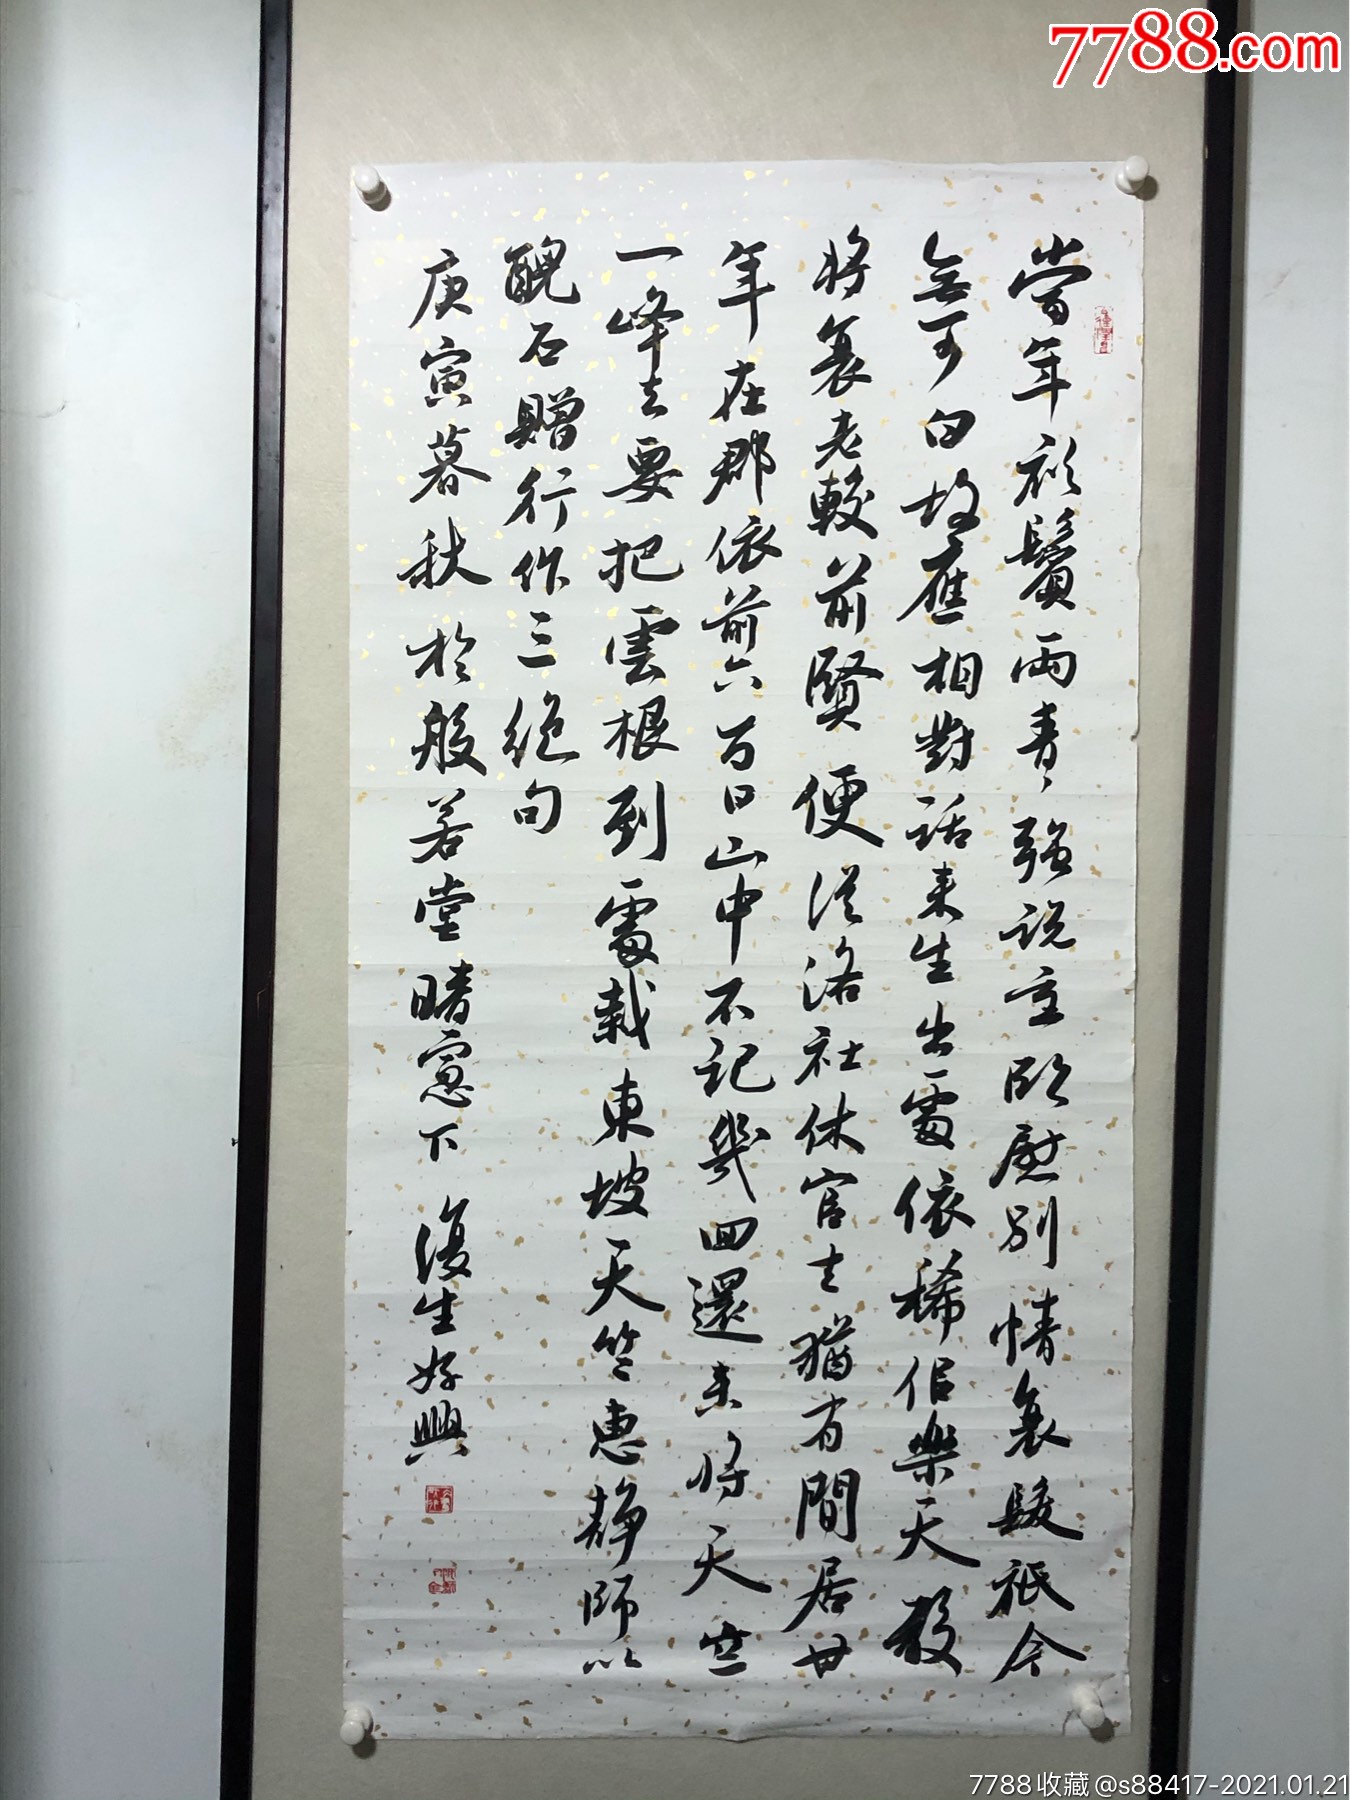 當年衫鬢兩青、強說重臨慰別情衰髮祇今
無可白故應相對話來生出處依稀佀樂天敢
將衰老較前賢便從洛社休官去猶有間居廿
年在郡依前六百日山中不記幾回還来將天竺
一峰去要把雲根到處栽東坡天竺惠靜師以
醜石贈行作三絕句
庚寅暮秋於般若堂晴窗下 復生好興
7788.com
7788收藏@s88417-2021.01.21